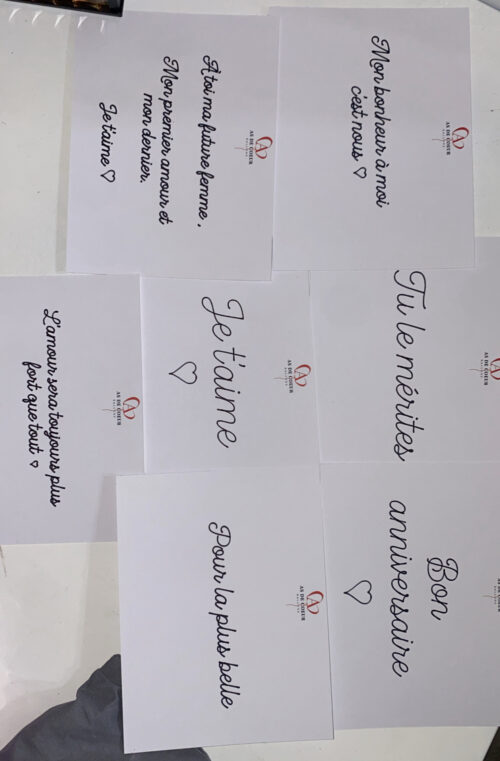 AS DE COEUR
Mon bonheur à moi
c'est nous ♡
AS DE COEUR
Tu le mérites
AS DE COEUR
Bon
anniversaire
♡
AS DE COEUR
À toi ma future femme,
Mon premier amour et
mon dernier.
Je t'aime ♡
AS DE COEUR
Je t'aime
♡
AS DE COEUR
Pour la plus belle
AS DE COEUR
L'amour sera toujours plus
fort que tout ♡